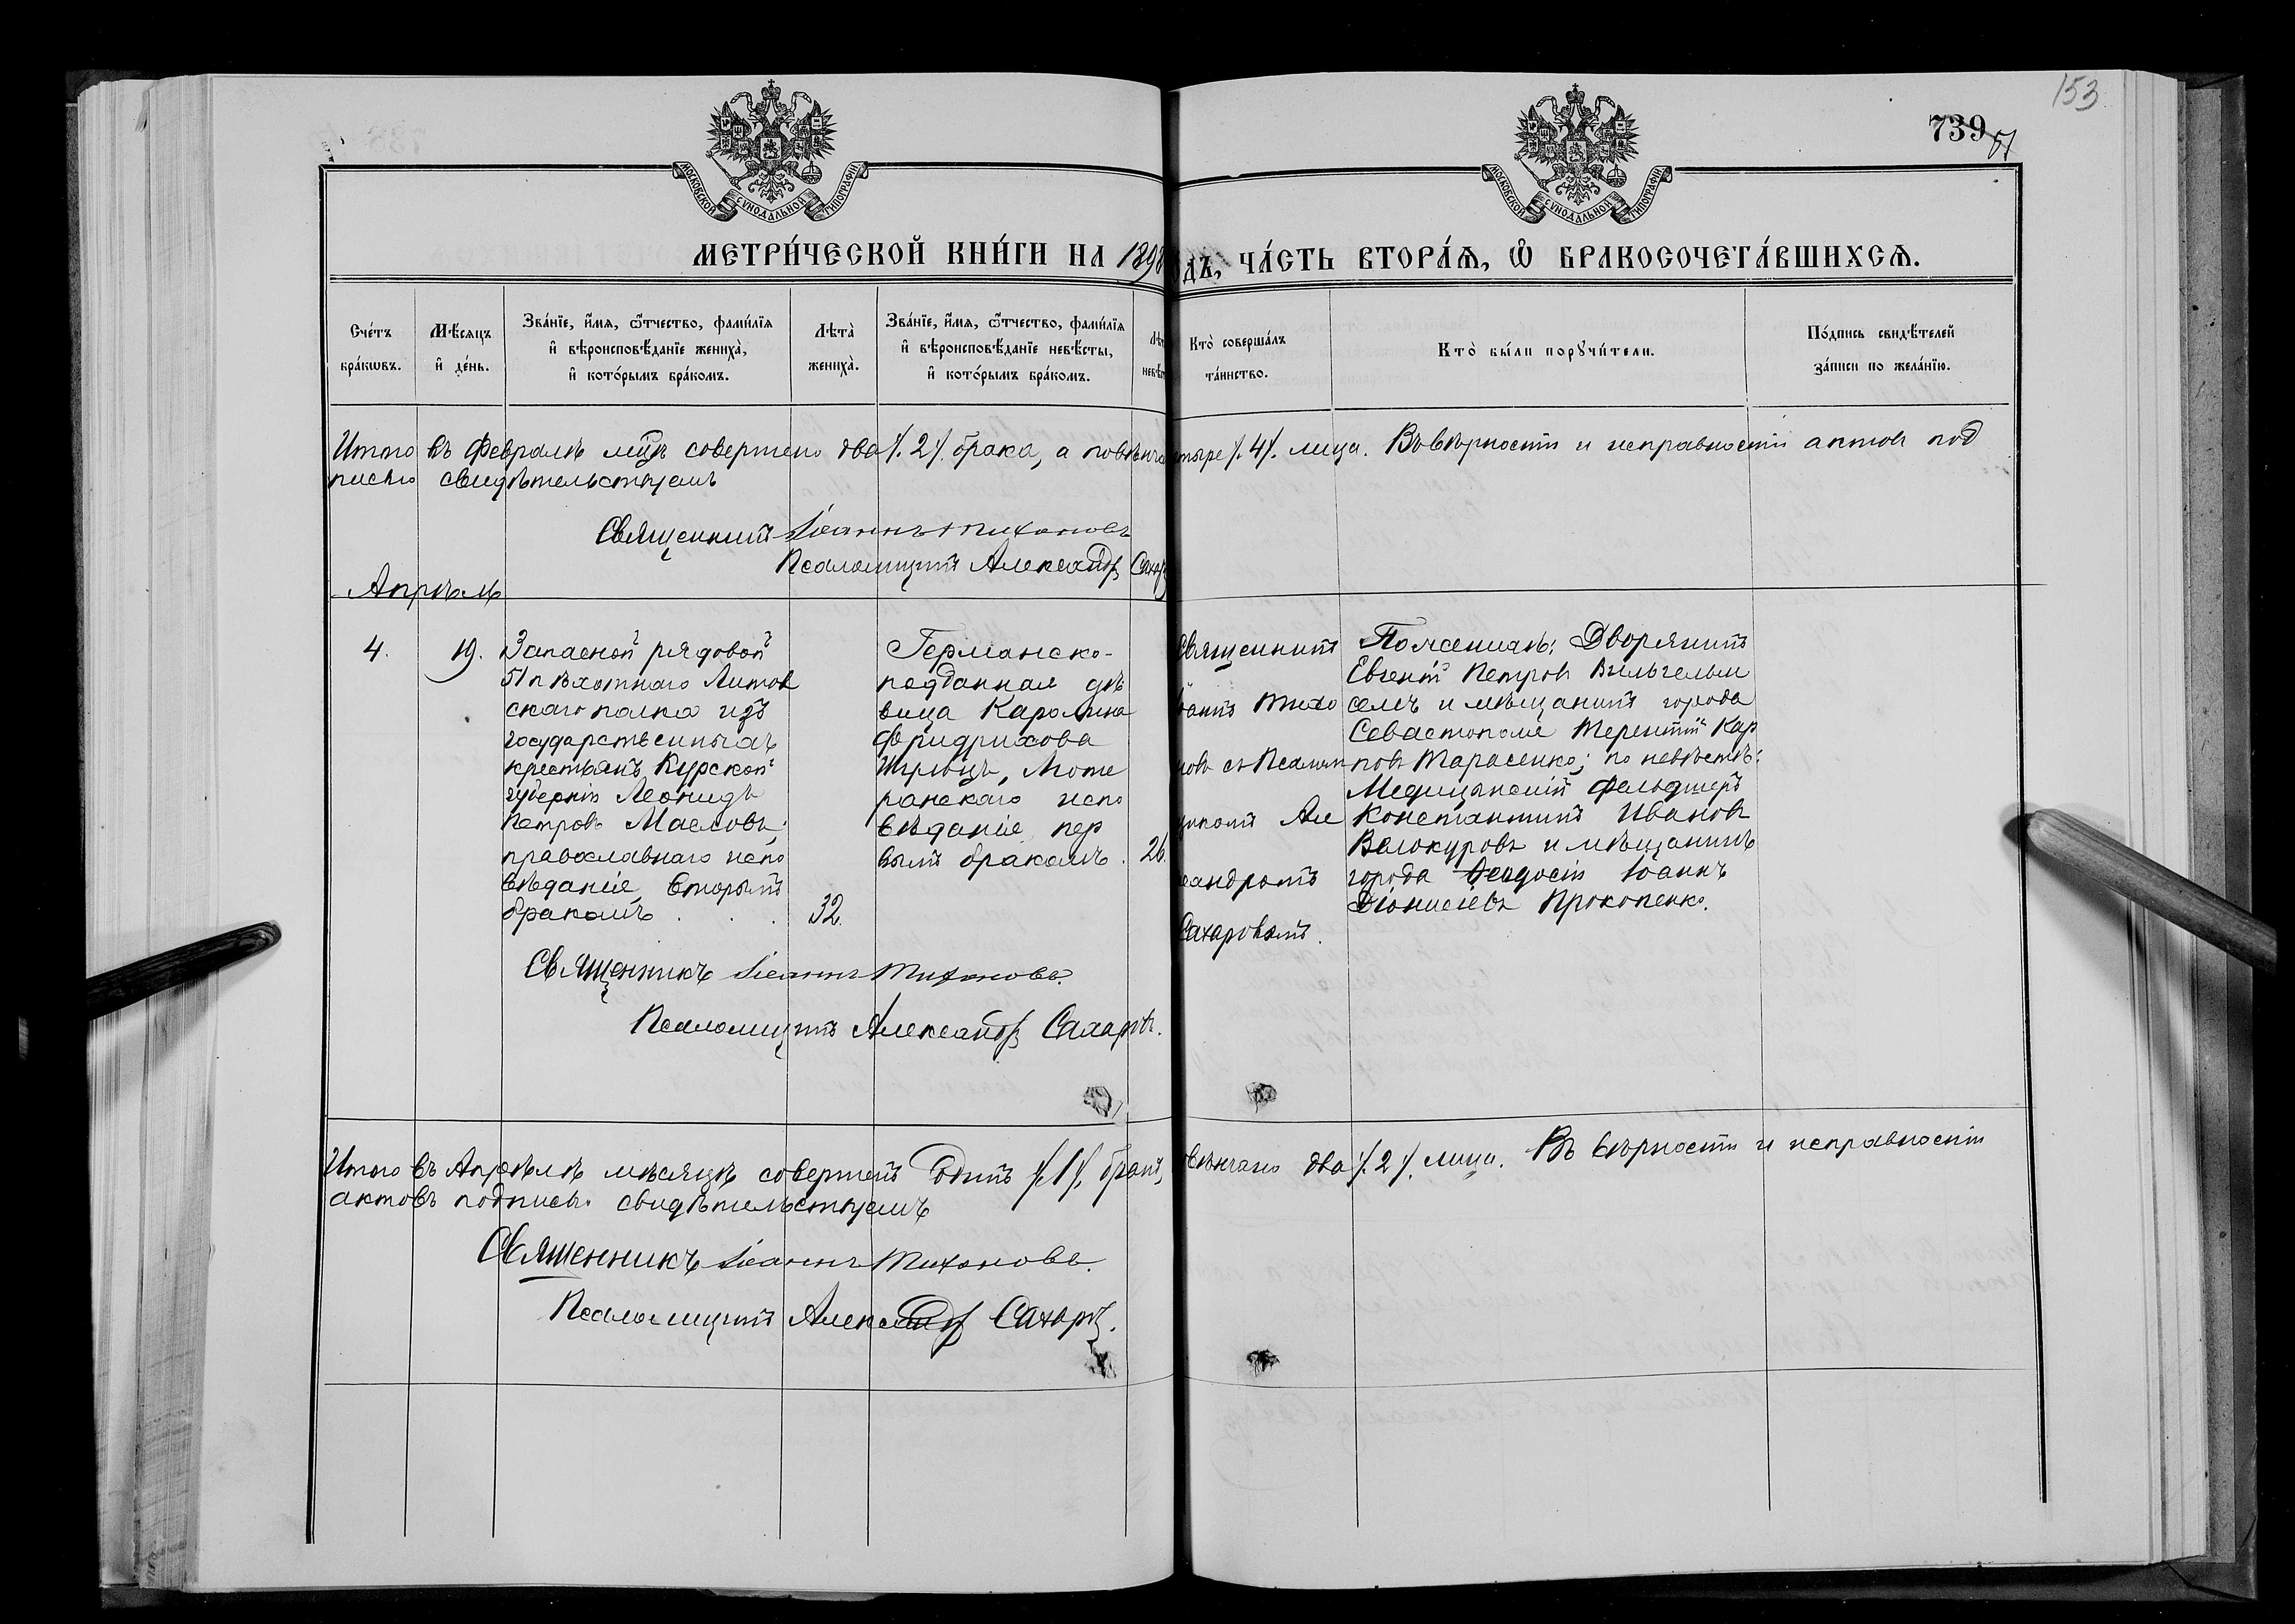 153
739
51
МОСКОВСКОЙ СѴНОДАЛЬНОЙ ТИПОГРАФІИ
МОСКОВСКОЙ СѴНОДАЛЬНОЙ ТИПОГРАФІИ
МЕТРИ́ЧЕСКОЙ КНИ́ГИ НА 1898
ДЪ, ЧА́СТЬ ВТОРА́Ѧ, Ѡ҆ БРАКОСОЧЕТА́ВШИХСѦ.
Сче́тъ
бра́кωвъ.
Мѣ́сяцъ
и҆ де́нь.
Зва́нїе, и҆́мѧ, ѻ҆́тчество, фами́лїѧ
и҆ вѣроисповѣ́данїе жениха̀,
и҆ кото́рымъ бра́комъ.
Лѣта̀
жениха̀.
Зва́нїе, и҆́мѧ, ѻ҆́тчество, фами́лїѧ
и҆ вѣроисповѣ́данїе невѣ́сты,
и҆ кото́рымъ бра́комъ.
Лѣт
невѣс
Кто̀ соверша́лъ
та́инство.
Кто̀ бы́ли порꙋчи́тели.
По́дпись свидѣ́телей
за́писи по жела́нїю.
Итого въ Февралѣ мцѣ совершено два /.2/. брака, а повѣнча
тыре /.4/. лица. Въ вѣрности и исправности актовъ под
писью свидѣтельствуемъ
Священникъ Іоаннъ Тихоновъ
Псаломщикъ Александръ Сахар
Апрѣль
4.
19.
Запасной рядовой
51 пѣхотнаго Литов
скаго полка изъ
государственныхъ
крестьянъ Курской
губерніи Леонидъ
Петровъ Масловъ,
православнаго испо
вѣданія, вторымъ
бракомъ . . .
32.
Германско-
подданная дѣ
вица Каролина
Фридрихова
Шульцъ, Люте
ранскаго испо
вѣданія, пер
вымъ бракомъ.
26.
Священникъ
оаннъ Тихо
новъ съ Псалом
щикомъ Але
сандромъ
Сахаровымъ.
По женихѣ: Дворянинъ
Евгеній Петровъ Вильгельм
семъ и мѣщанинъ города
Севастополя Терентій Кар
повъ Тарасенко; по невѣстѣ:
Медицинскій Фельдшеръ
Константинъ Ивановъ
Бѣлокуровъ и мѣщанинъ
города Ѳеодосіи Іоаннъ
Діонисіевъ Прокопенко.
Священникъ Іоаннъ Тихоновъ.
Псаломщикъ Александръ Сахаровъ.
Итого въ Апрѣлѣ мѣсяцѣ совершенъ Одинъ /.1/. бракъ,
овѣнчано два /.2/. лица. Въ вѣрности и исправности
актовъ подписью свидѣтельствуемъ
Священникъ Іоаннъ Тихоновъ.
Псаломщикъ Александръ Сахаръ.